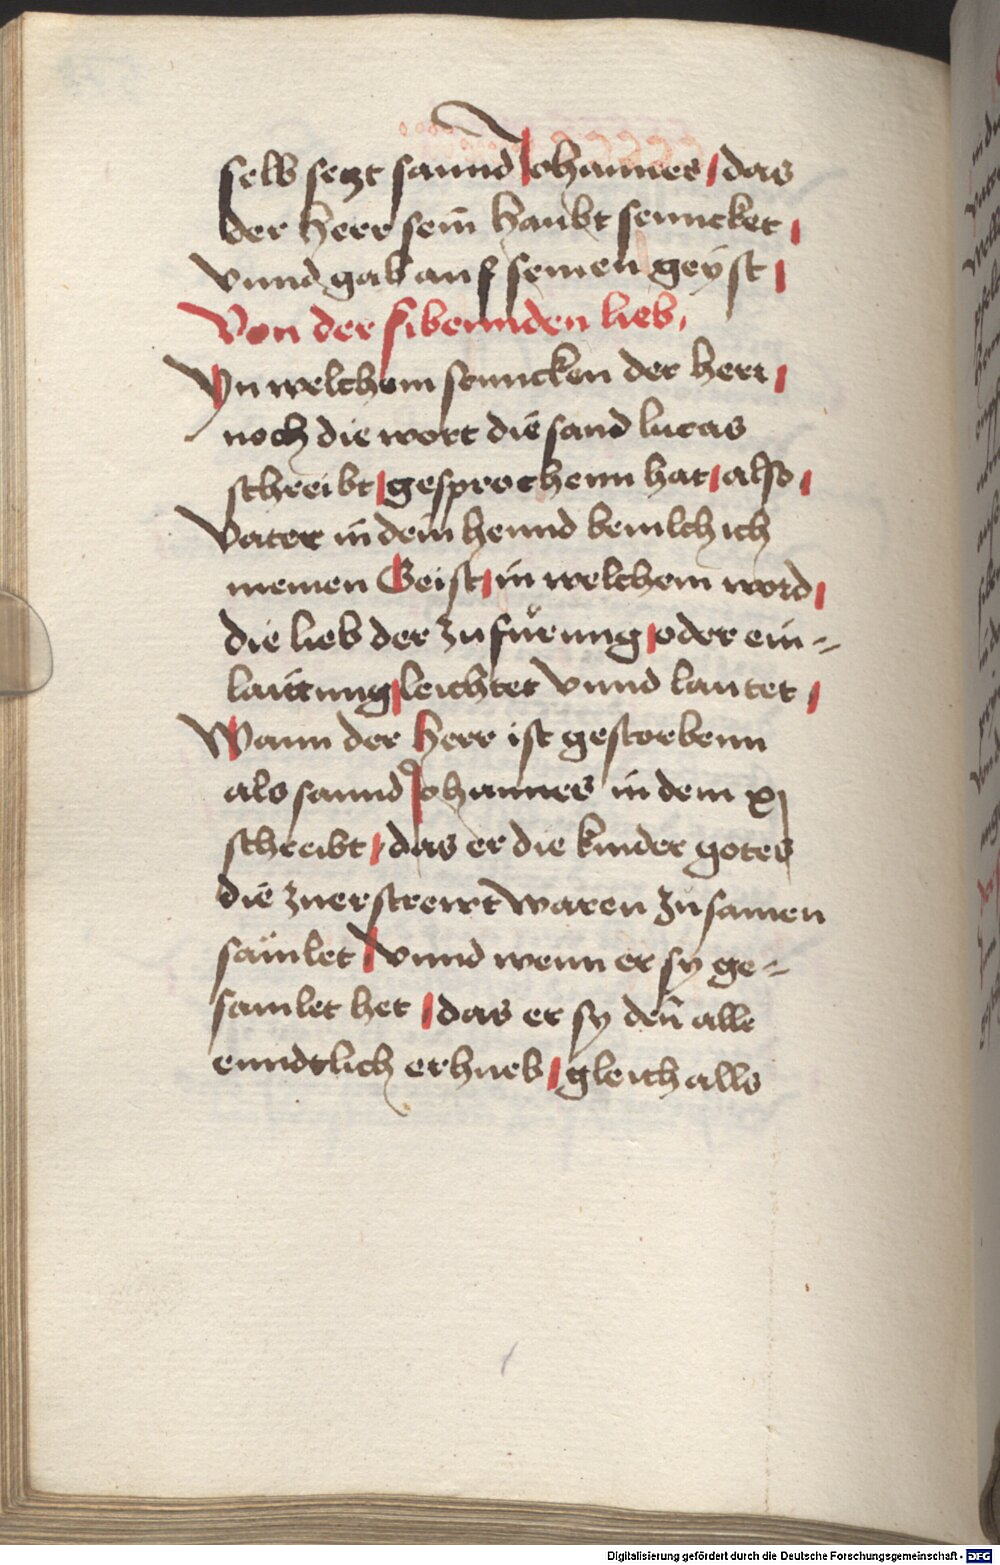 selb setzt sannd Johannes / das
der herr sein haubt senncket /
vnnd gab auf seinen geÿst /
Von der sibennden lieb /
Yn welchem senncken der herr /
noch die wort die sand lucas
schreibt / gesprochenn hat / also /
Vater in dein hennd beuilch ich
meinen Geist / in welchem word /
die lieb der zufürung / oder ein=
lautung / leichtet vnnd lautet /
Wann der herr ist gestorbenn
als sannd Johannes in dem xj
schreibt / das er die kinder gotes
die zuerstrewt waren zusamen
sämlet / vnnd wenn er sy ge=
samlet het / das er sy den alle
enndtlich erhueb / gleich alls
Digitalisierung gefördert durch die Deutsche Forschungsgemeinschaft - DFG